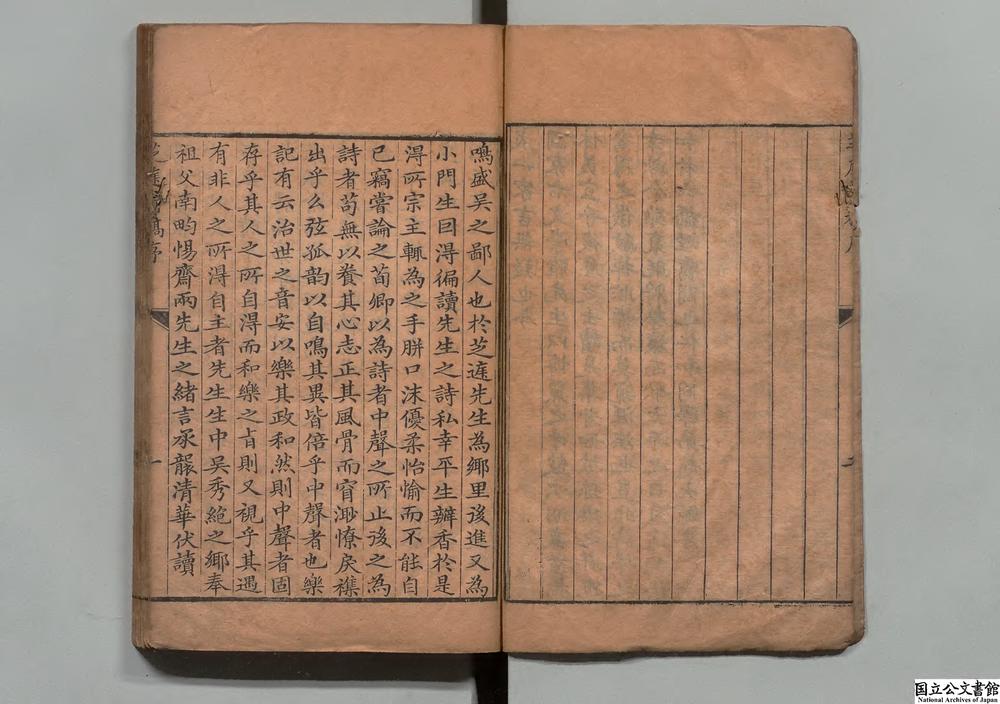 鳴盛吴之鄙人也於芝庭先生為鄉里後進又為
小門生曰得徧讀先生之詩私幸平生瓣香於是
得所宗主輒為之手胼口沫優柔怡愉而不能自
已竊嘗論之荀卿以為詩者中聲之所止後之為
詩者苟無以養其心志正其風骨而窅渺憭戾襍
出乎么弦孤韵以自鳴其異皆倍乎中聲者也樂
記有云治世之音安以樂其政和然則中聲者固
存乎其人之所自得而和樂之㫖則又視乎其遇
有非人之所得自主者先生生中吴秀絶之鄉奉
祖父南畇惕齋兩先生之緒言承襲清華伏讀
芝庭 序
一
国立公文書館
National Archives of Japan